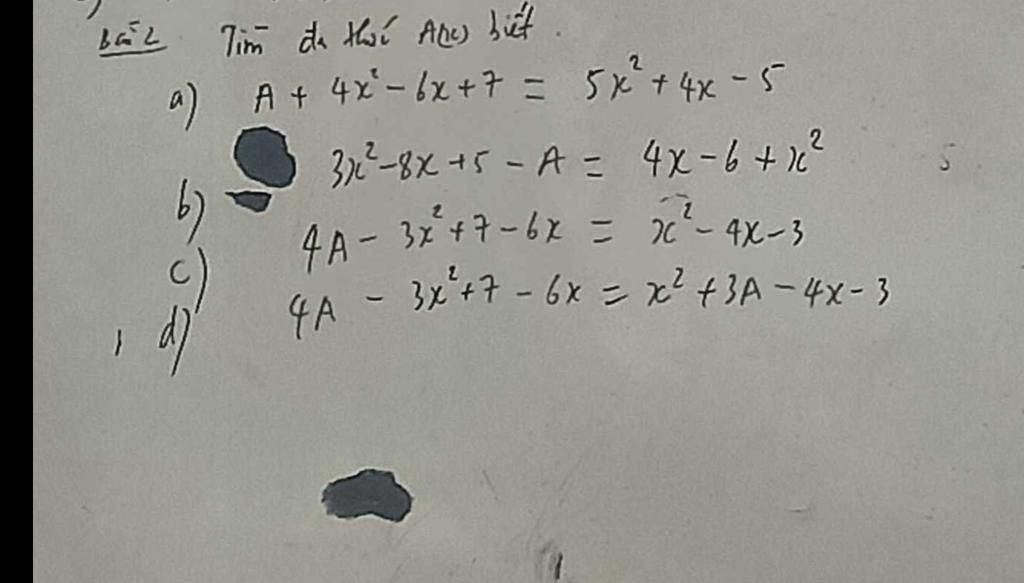 Bài 2 Tìm đa thức A(x) biết.
a) A + 4x² - 6x + 7 = 5x² + 4x - 5
b) 3x² - 8x + 5 - A = 4x - 6 + x²
c) 4A - 3x² + 7 - 6x = x² - 4x - 3
d) 4A - 3x² + 7 - 6x = x² + 3A - 4x - 3